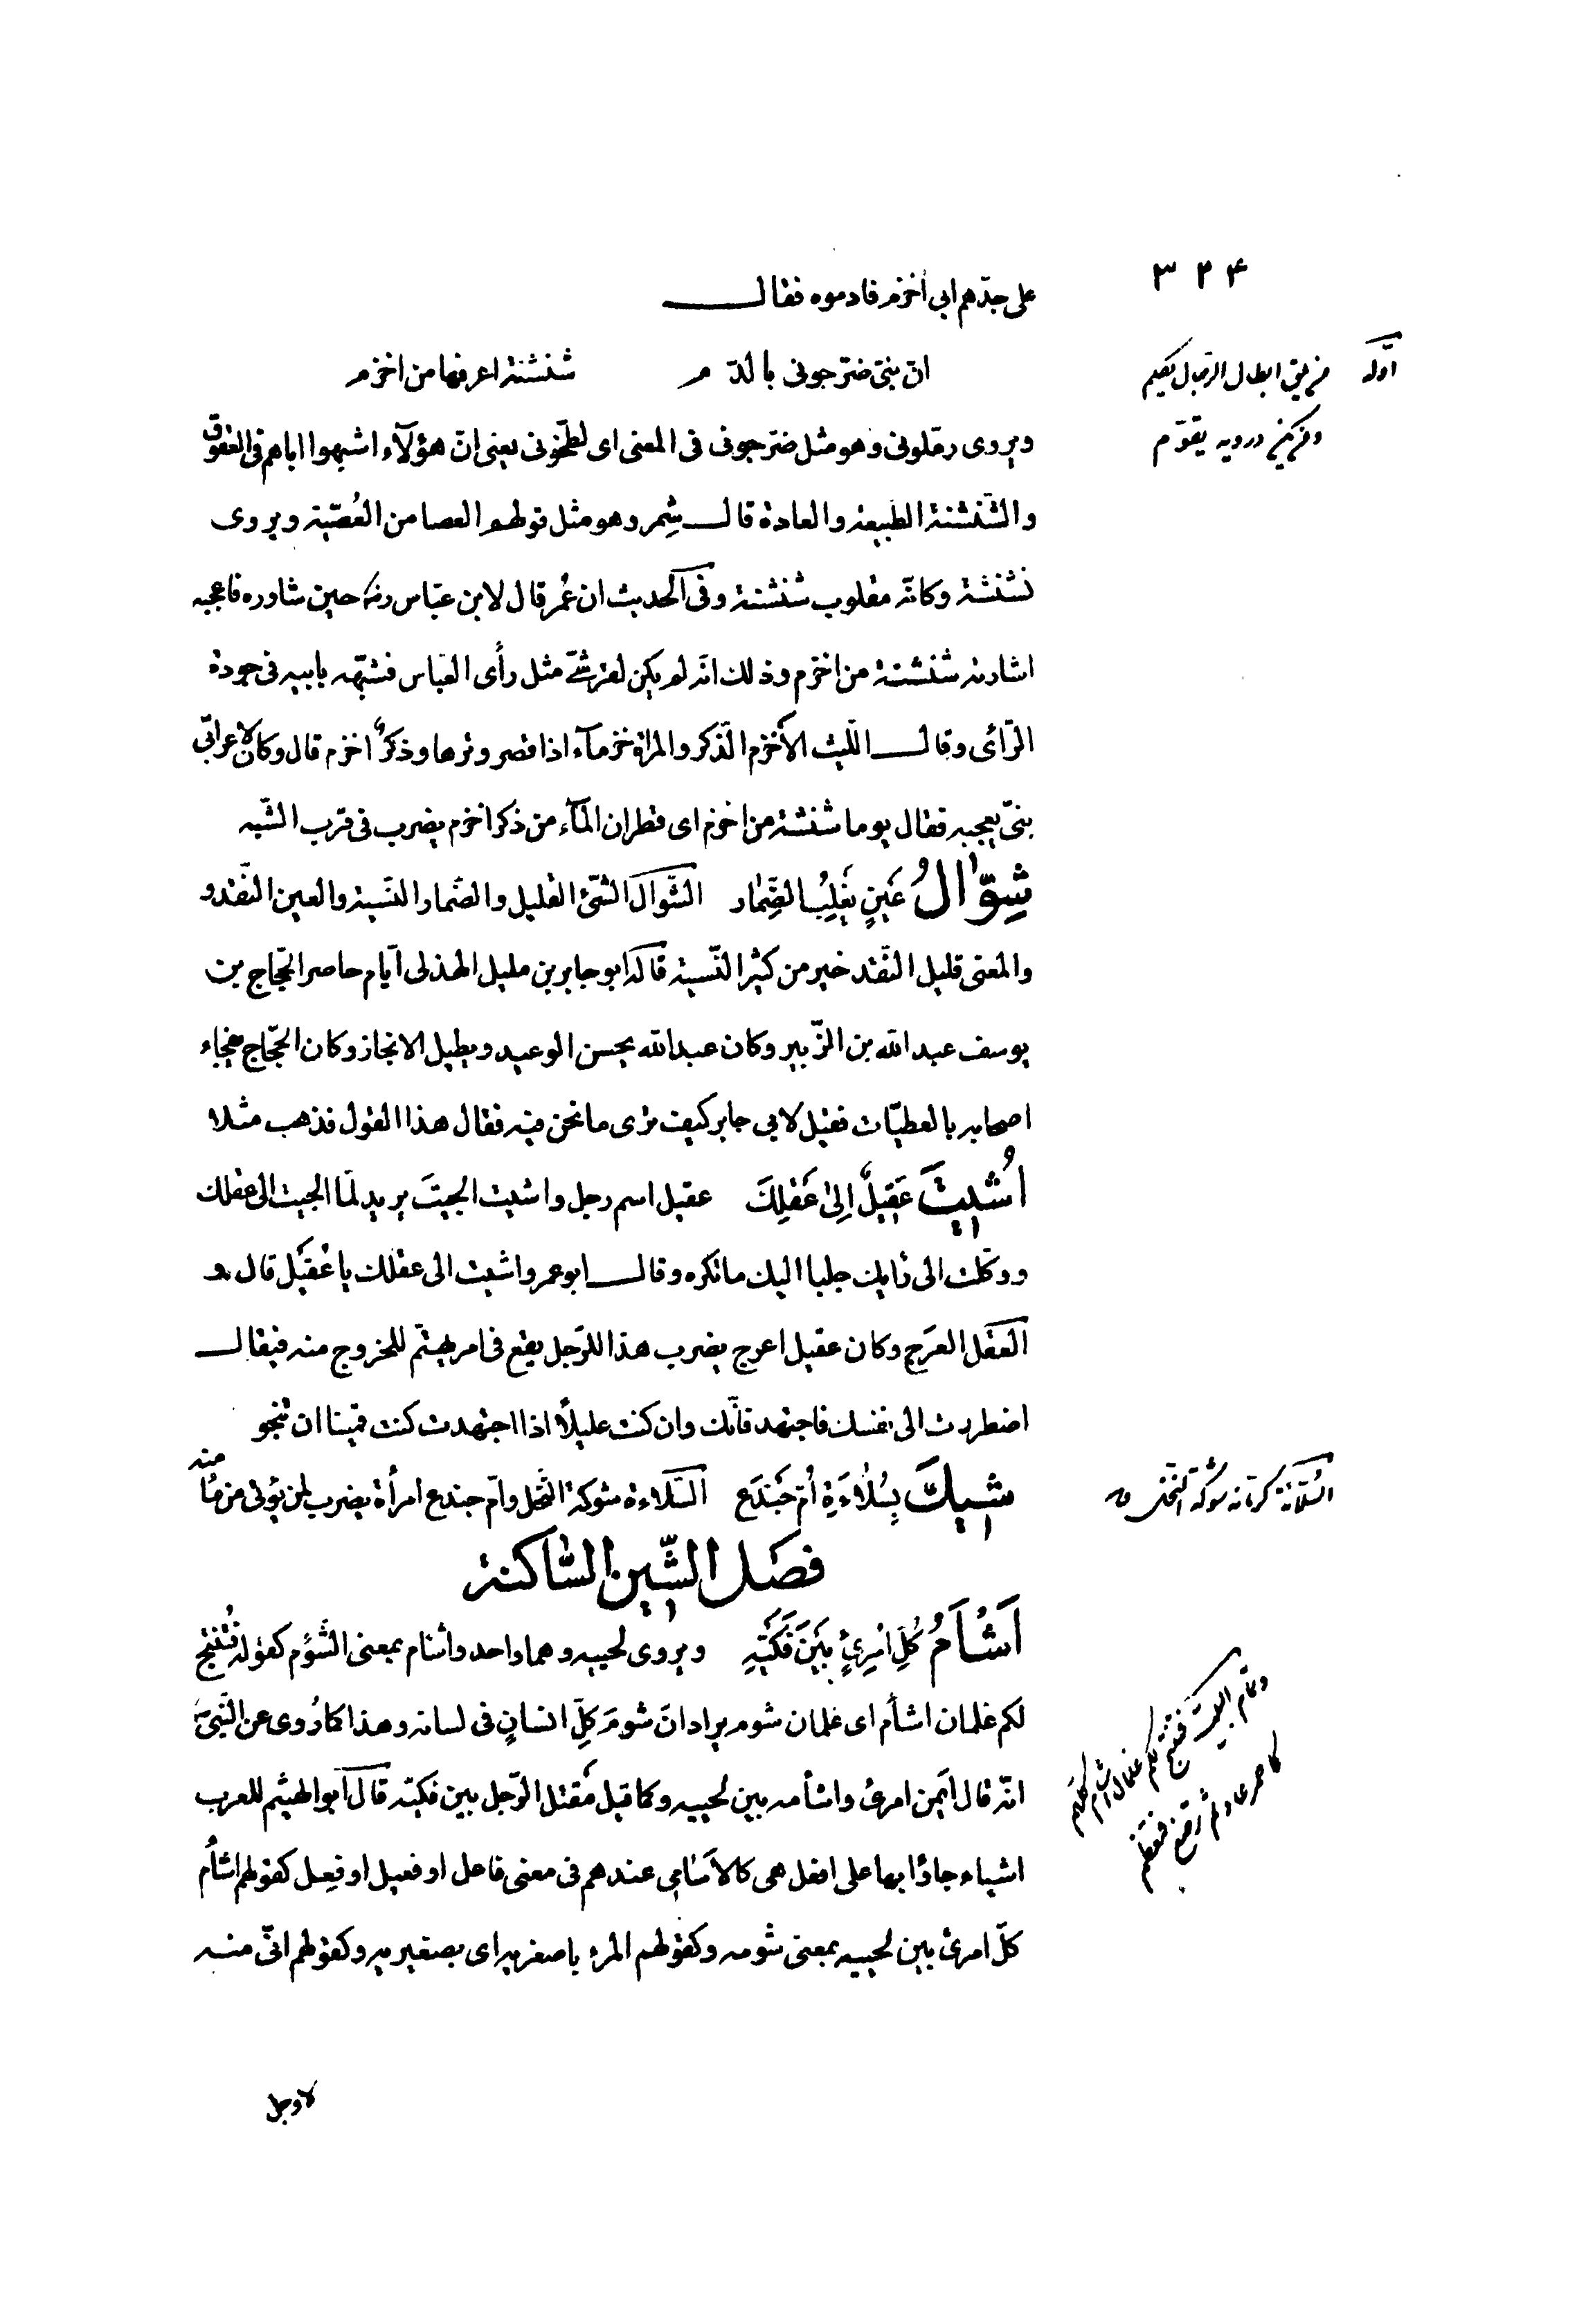 ٣٢۴
على جدّهم ابى أخزم فادموه فقال
انّ بنىّ ضرّجونى بالدّم شنشنة اعرفها من اخزم
ويروى رمّلونى وهو مثل ضرّجونى فى المعنى اى لطّخونى يعنى انّ هؤلآء اشبهوا اباهم فى العقوق
والشّنشنة الطبيعة والعادة قال شِمر وهو مثل قولهم العصا من العُصَيّة ويروى
نشنشة وكانّه مقلوب شنشنة وفى الحديث ان عُمر قال لابن عبّاس رضه حين شاوره فاعجبه
اشارته شنشنة من اخزم وذلك انّه لم يكن لقرشىّ مثل رأى العبّاس فشبّهه بابيه فى جودة
الرّائى وقال اللّيث الأخزم الذّكر والمراة خزمآء اذا قصر وترها وذكرٌ اخزم قال وكان لاعرابّى
بنىّ يعجبه فقال يوما شنشنة من اخزم اى قطران المآء من ذكر اخزم يضرب فى قرب الشّبه
شِوّالُ عَينٍ يَغلِبُ الضِّمار الشّوال الشّئ القليل والضّمار النّسية والعين النّقد و
والمعنى قليل النّقد خير من كثير النّسية قاله ابو جابر بن مليل الهذلى ايّام حاصر الحجّاج بن
يوسف عبد الله بن الزّبير وكان عبد الله يحسن الوعيد ويطيل الانجاز وكان الحجّاج يفجاء
اصحابه بالعطيّات فقيل لابى جابر كيف ترى ما نحن فيه فقال هذا القول فذهب مثلا
اُشئيتَ عَقيلُ اِلىٰ عَقلِكَ عقيل اسم رجل واشئيت الجيتَ يريد لمّا الجيت الى عقلك
ووكّلت الى رايك جلبا اليك ما تكره وقال ابو عمرو اشئيت الى عقلك يا عُقَيل قال و
العَقَل العرَج وكان عقيل اعرج يضرب هذا للرّجل يقع فى امر يهتّم للخروج منه فيقال
اضطررت الى نفسك فاجتهد فانّك وان كنت عليلاً اذا اجتهدت كنت قمينا ان تنجو
شيكَ بِسُلاءَةِ اُمّ جُندَع السّلاءة شوكة النّخل وامّ جندع امرأة يضرب لمن يؤتى من مأمنه
فصل الشّين السّاكنة
اَشأَمُ كُلِّ امرِئٍ بَينَ فَكَّيهِ ويروى لحييه وهما واحد واشئام بمعنى الشّوءم كقوله فتُنتج
لكم غلمان اشأم اى غلمان شوم يراد انّ شومَ كلِّ انسانٍ فى لسانه وهذا كما رُوى عن النّبىّ
انّه قال أيمن امرئ واشأمه بين لحييه وكما قيل مَقتل الرّجل بين فكّيه قال ابو الهيثم للعرب
اشياء جاؤا بها على افعل هى كالاَسَامى عندهم فى معنى فاعل او فعيل او فعِل كقولهم اشأم
كلّ امرئ بين لحييه بمعنى شومه وكقولهم المرء باصغريه اى بصغيريه وكقولهم انّى منه
لاوجل
اوّله من يلق ابطال الرّجال يكلم
ومن يكن درء به يقوّم
السّلاءة كرمّانة شوكة النّخل ق
وتمام البيت فتنتج لكم غلمان اشأم كلّهم
كاحمر عاد ثم ترضع فتفطم